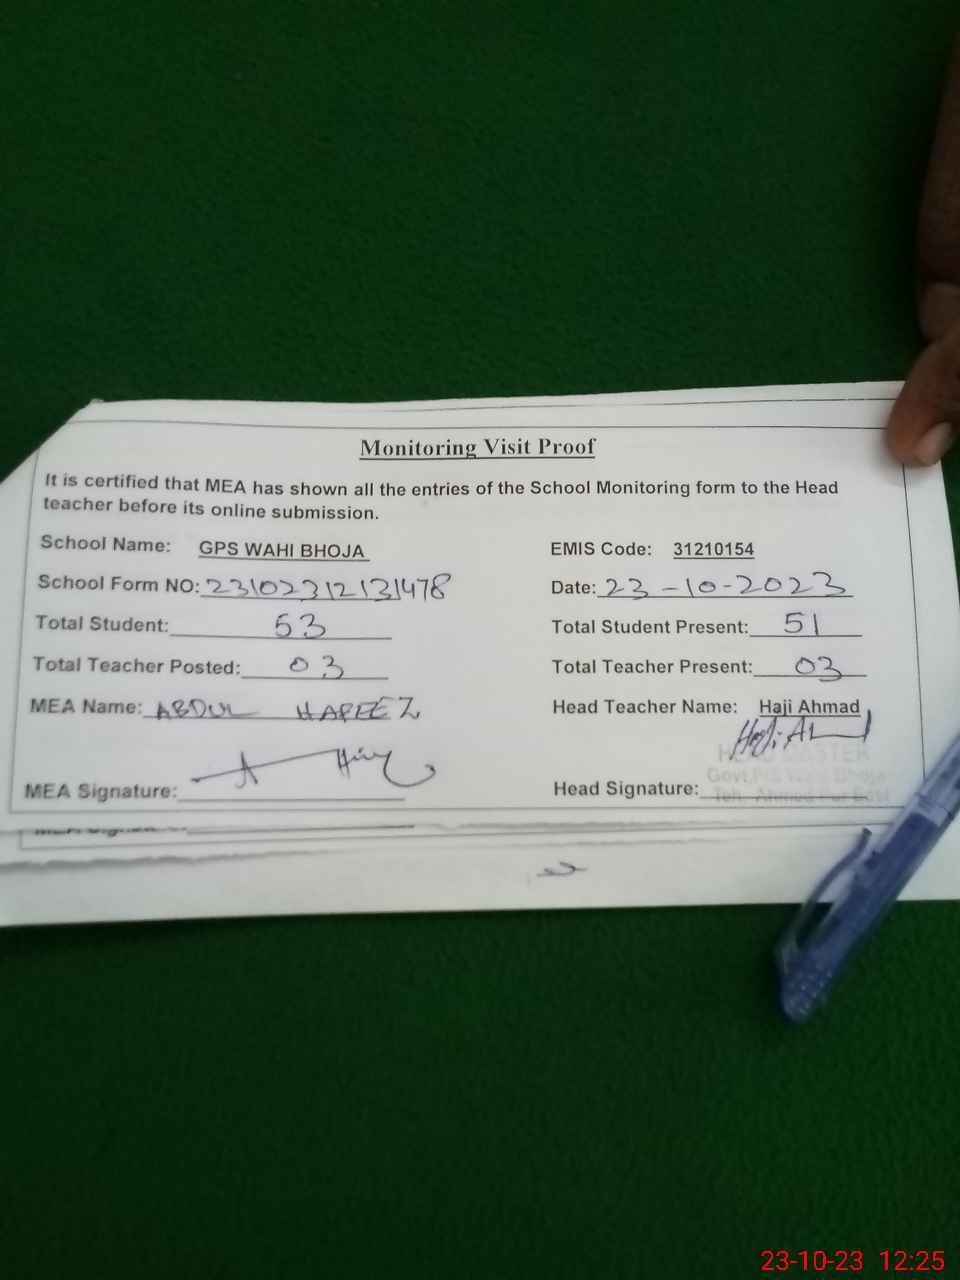 Monitoring Visit Proof
It is certified that MEA has shown all the entries of the School Monitoring form to the Head
teacher before its online submission.
School Name: GPS WAHI BHOJA EMIS Code: 31210154
School Form NO: 23102312131478 Date: 23-10-2023
Total Student: 53 Total Student Present: 51
Total Teacher Posted: 03 Total Teacher Present: 03
MEA Name: ABDUL HAFEEZ Head Teacher Name: Haji Ahmad
MEA Signature: Head Signature:
HEAD MASTER
Teh. Ahmed Pur East
23-10-23 12:25